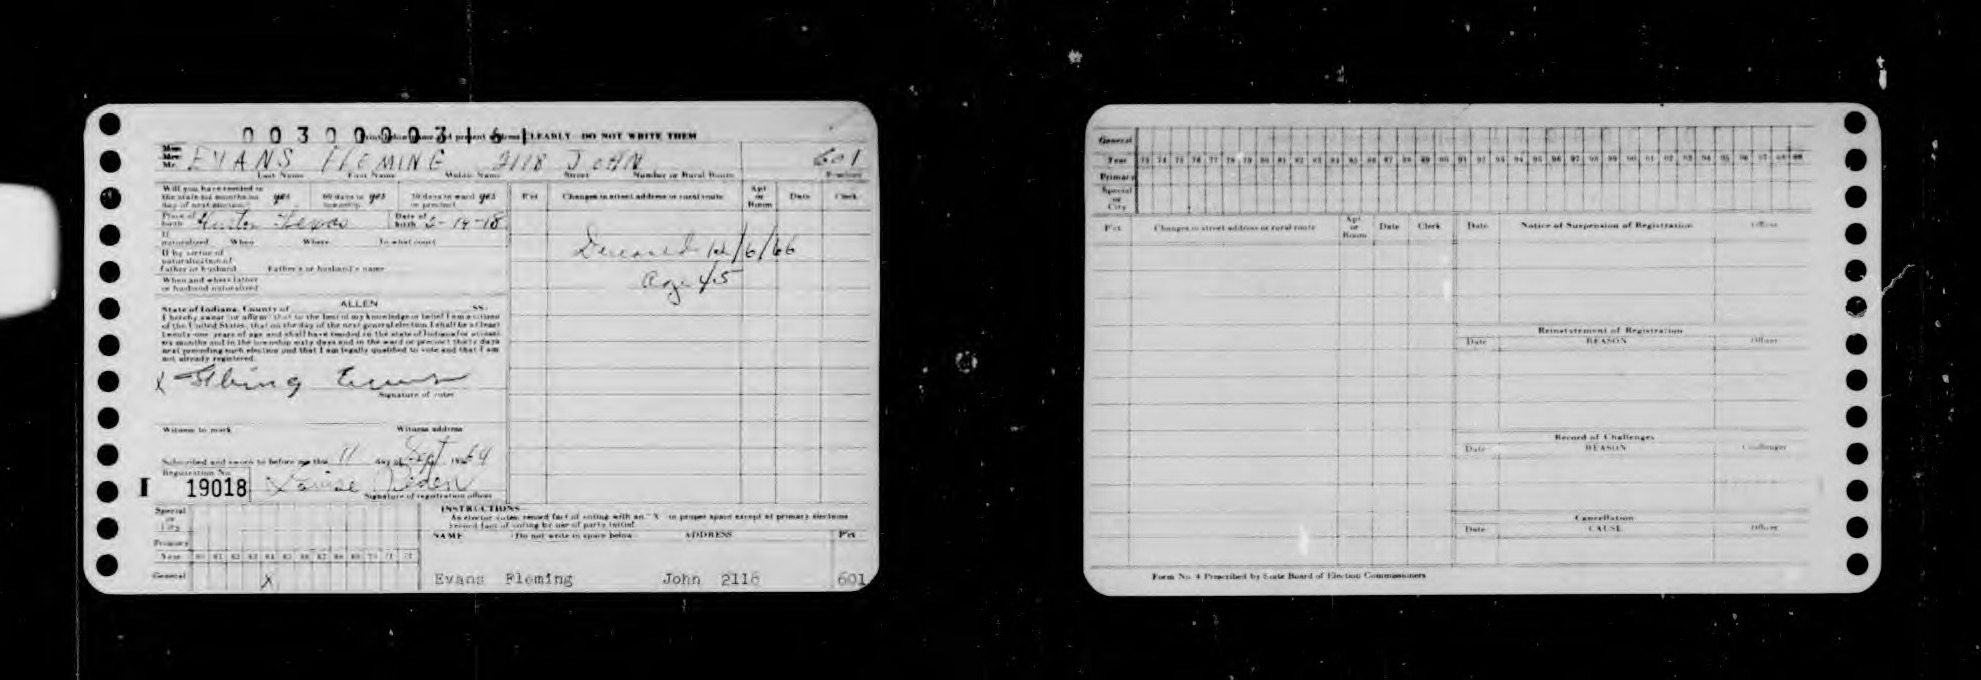 00300000316 1
Print below name and present address CLEARLY - DO NOT WRITE THEM
Miss
Mrs.
Mr. EVANS FLEMING 2118 JOHN 601
Last Name First Name Middle Name Street Number or Rural Route Precinct
Will you have resided in the state six months on day of next election? yes 60 days in township yes 30 days in ward or precinct yes
Pct Changes in street address or rural route Apt or Room Date Clerk
Place of birth Texas Date of birth
If naturalized When Where To what court
If by virtue of naturalization of Father or husband Father's or husband's name
When and where father or husband naturalized
Deceased 12/6/66
age 45
State of Indiana, County of ALLEN SS:
I hereby swear (or affirm) that to the best of my knowledge or belief I am a citizen
of the United States; that on the day of the next general election I shall be at least
twenty-one years of age and shall have resided in the state of Indiana for at least
six months and in the township sixty days and in the ward or precinct thirty days
next preceding such election and that I am legally qualified to vote and that I am
not already registered.
X Evans
Signature of voter
Witness to mark Witness address
Subscribed and sworn to before me this 11 day of Sept 1964
Registration No.
I 19018 Louise
Signature of registration officer
Special or City
Primary
Year 60 61 62 63 64 65 66 67 68 69 70 71 72
General X
INSTRUCTIONS
As elector votes, record fact of voting with an "X" in proper space except at primary elections
record fact of voting by use of party initial
NAME (Do not write in space below) ADDRESS Pct
Evans Fleming John 2118 601
General
Year 73 74 75 76 77 78 79 80 81 82 83 84 85 86 87 88 89 90 91 92 93 94 95 96 97 98 99
Primary
Special or City
Pct Changes in street address or rural route Apt or Room Date Clerk Date Notice of Suspension of Registration Officer
Reinstatement of Registration
Date REASON Officer
Record of Challenges
Date REASON Challenger
Cancellation
Date CAUSE Officer
Form No. 4 Prescribed by State Board of Election Commissioners